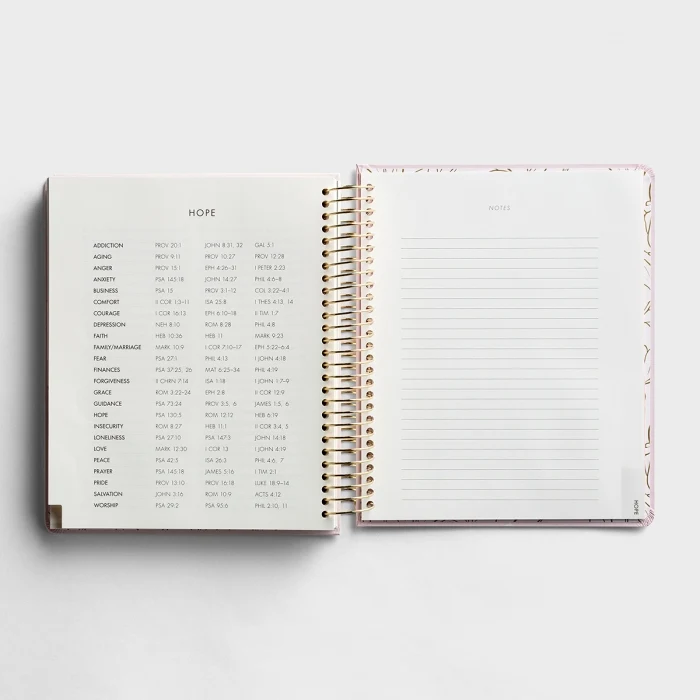 HOPE
ADDICTION PROV 20:1 JOHN 8:31, 32 GAL 5:1
AGING PROV 9:11 PROV 10:27 PROV 12:28
ANGER PROV 15:1 EPH 4:26-31 I PETER 2:23
ANXIETY PSA 145:18 JOHN 14:27 PHIL 4:6-8
BUSINESS PSA 15 PROV 3:1-12 COL 3:22-4:1
COMFORT II COR 1:3-11 ISA 25:8 I THES 4:13, 14
COURAGE I COR 16:13 EPH 6:10-18 II TIM 1:7
DEPRESSION NEH 8:10 ROM 8:28 PHIL 4:8
FAITH HEB 10:36 HEB 11 MARK 9:23
FAMILY/MARRIAGE MARK 10:9 I COR 7:10-17 EPH 5:22-6:4
FEAR PSA 27:1 PHIL 4:13 I JOHN 4:18
FINANCES PSA 37:25, 26 MAT 6:25-34 PHIL 4:19
FORGIVENESS II CHRN 7:14 ISA 1:18 I JOHN 1:7-9
GRACE ROM 3:22-24 EPH 2:8 II COR 12:9
GUIDANCE PSA 73:24 PROV 3:5, 6 JAMES 1:5, 6
HOPE PSA 130:5 ROM 12:12 HEB 6:19
INSECURITY ROM 8:27 HEB 11:1 II COR 3:4, 5
LONELINESS PSA 27:10 PSA 147:3 JOHN 14:18
LOVE MARK 12:30 I COR 13 I JOHN 4:19
PEACE PSA 42:5 ISA 26:3 PHIL 4:6, 7
PRAYER PSA 145:18 JAMES 5:16 I TIM 2:1
PRIDE PROV 13:10 PROV 16:18 LUKE 18:9-14
SALVATION JOHN 3:16 ROM 10:9 ACTS 4:12
WORSHIP PSA 29:2 PSA 95:6 PHIL 2:10, 11
NOTES
HOPE